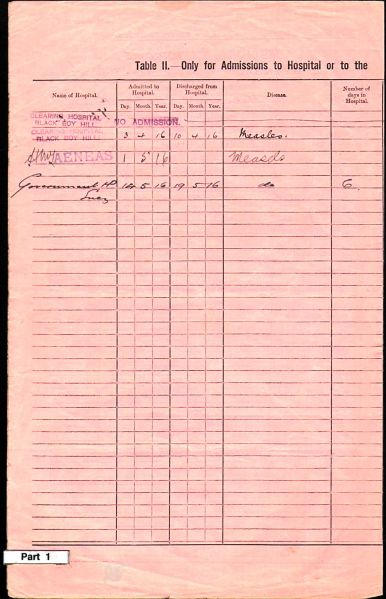 Table II.—Only for Admissions to Hospital or to the
Name of Hospital. Admitted to Hospital. Discharged from Hospital. Disease. Number of days in Hospital.
Day. Month. Year. Day. Month. Year.
CLEARING HOSPITAL
BLACK BOY HILL. NO ADMISSION.
CLEARING HOSPITAL
BLACK BOY HILL. 3 4 16 10 4 16 Measles.
AENEAS 1 5 16 Measels
Government H 14 5 16 19 5 16 do 6
Suez
Part 1